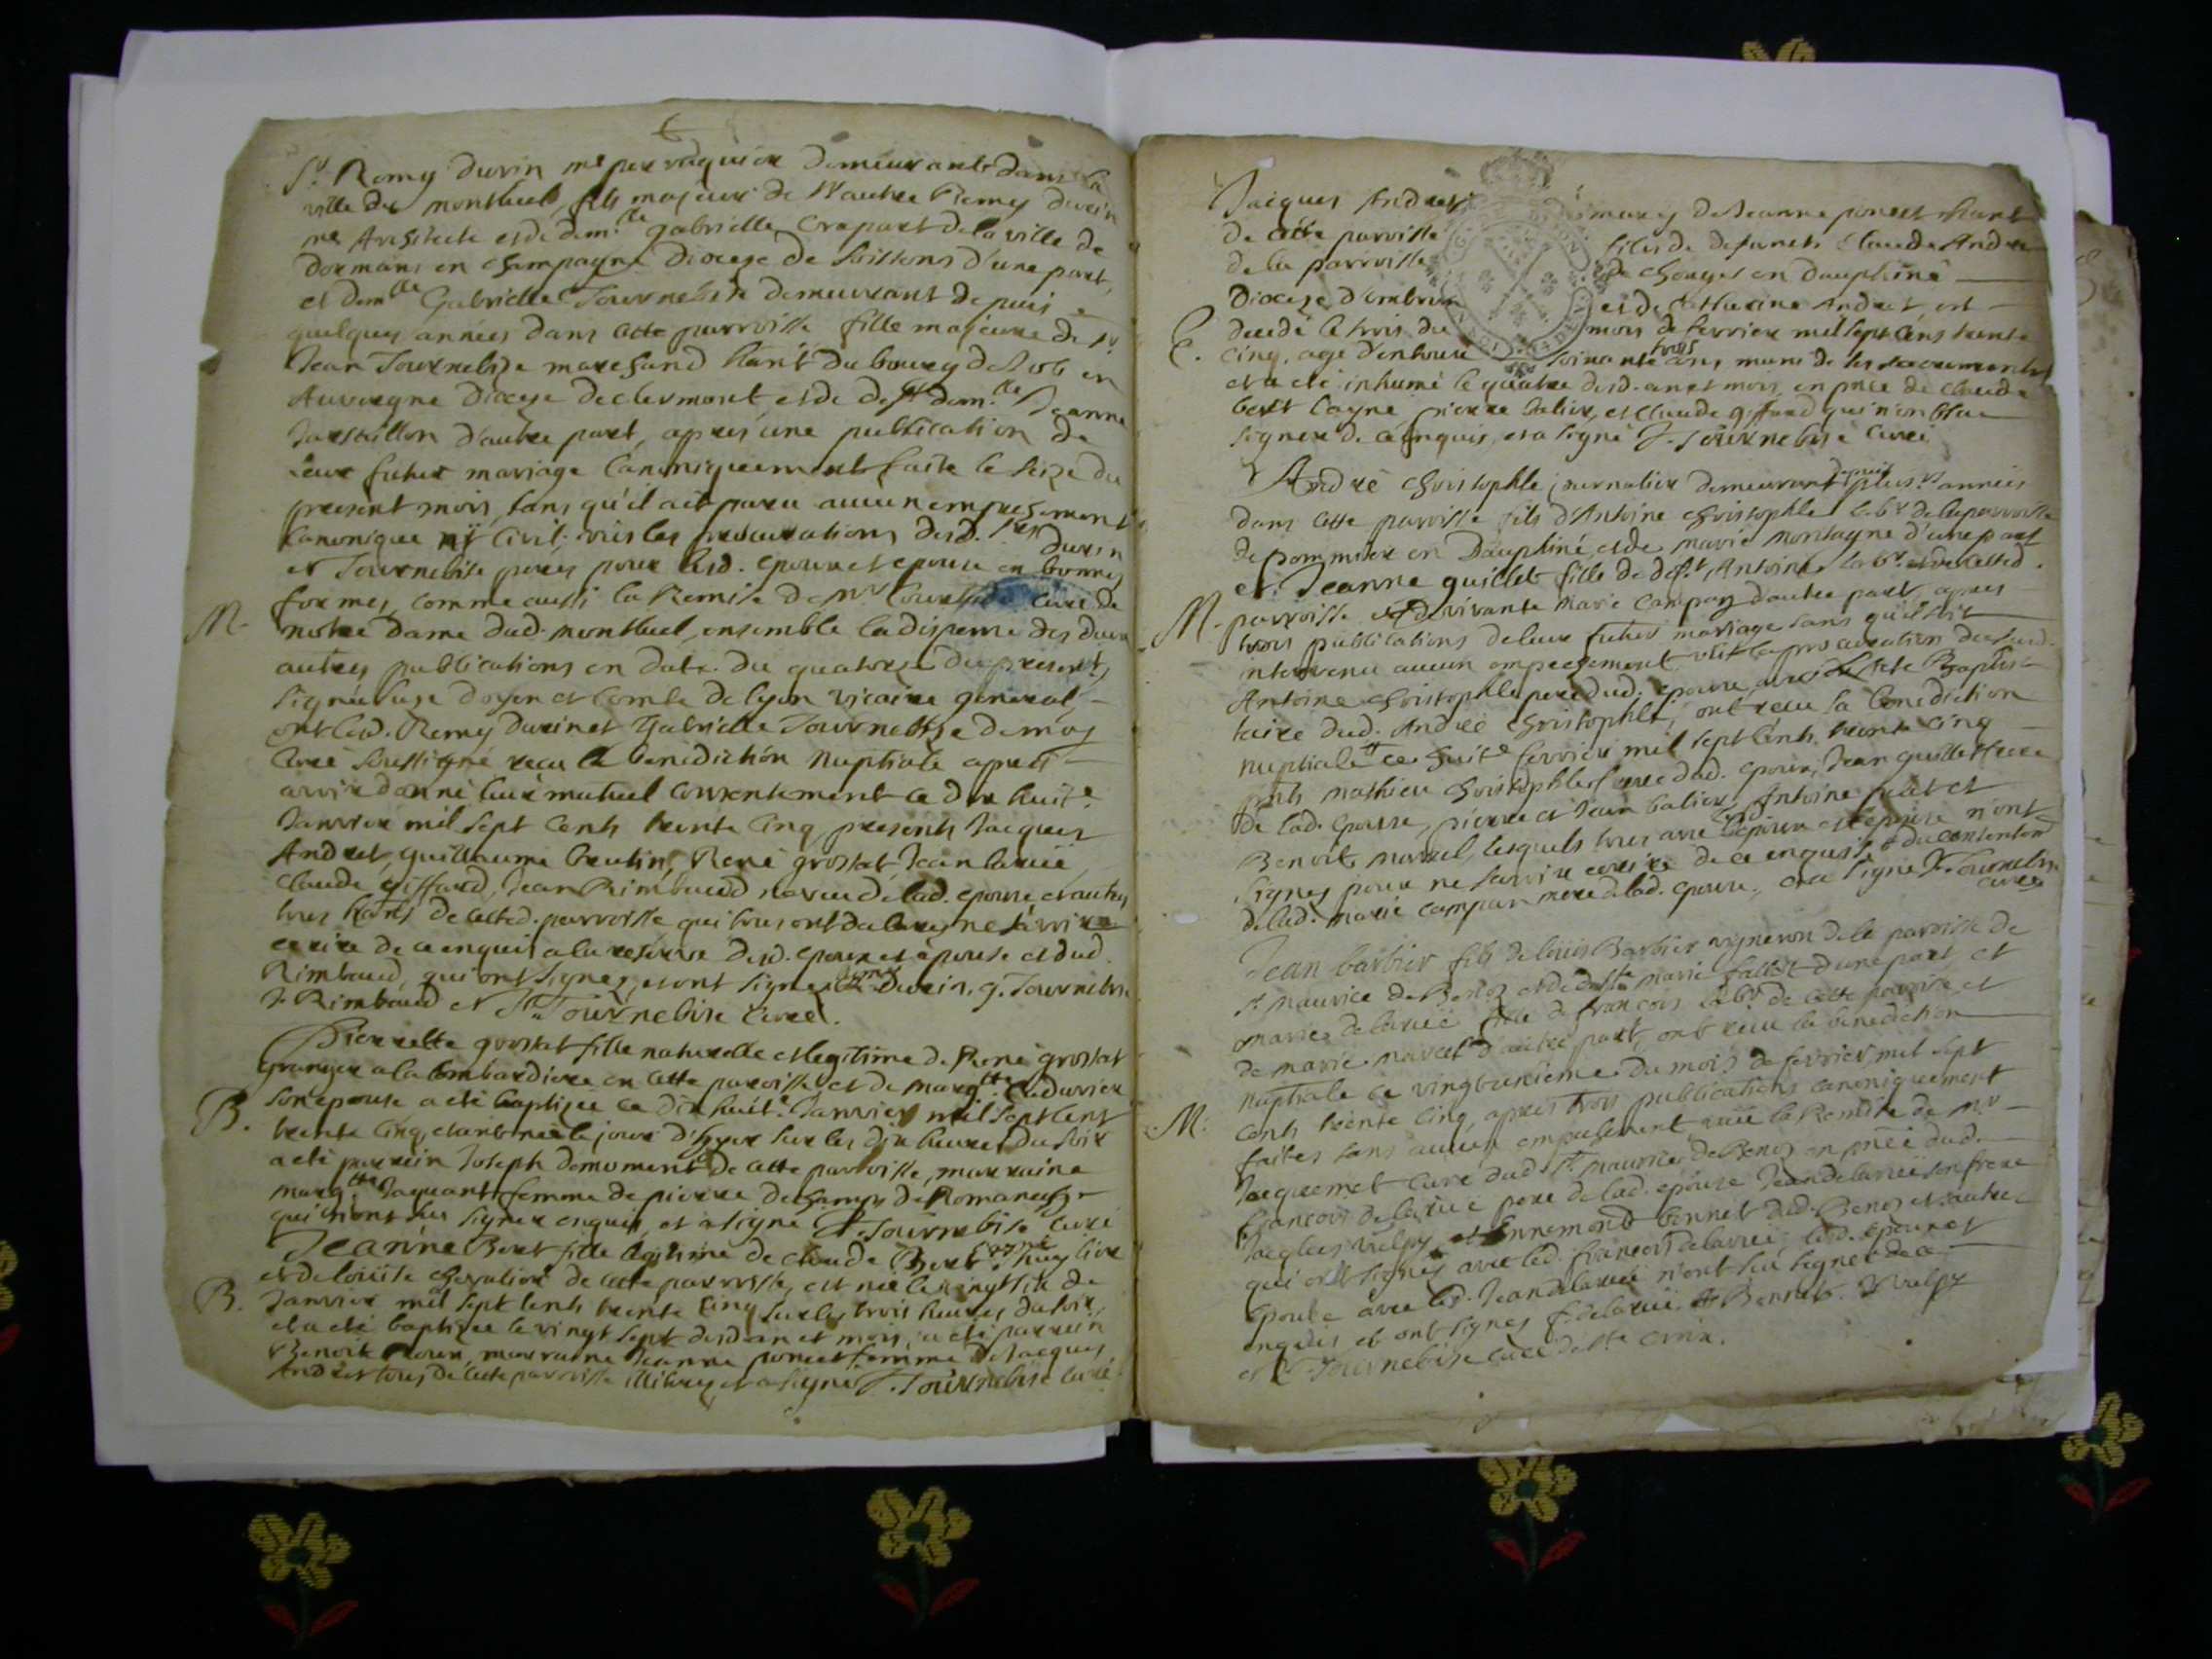 Sr. Remy durin me perruquier demeurant dans la
ville de montluel, fils majeur de Sr autre Remy durin
me Architecte et de demlle gabrielle Crapart de la ville de
dormans en Champagne Diocese de Soissons d'une part,
et demlle Gabrielle Tournebise demeurant depuis
quelques années dans cette parroisse fille majeure de Sr
Jean Tournebize marchand hant du bourg de Job en
Auvergne Diocese de clermont et de deft demlle Jeanne
d'autre part, apres une publication de
Leur futur mariage Canoniquement faite le seize du
present mois, sans qu'il ait paru aucun empechement
Canonique ny Civil. vües les procurations desd. Srs durin
et Tournebise peres pour lesd. epoux et epouse en bonnes
M. formes, comme aussi la Remise de Mr curé de
notre Dame dud. montluel, ensemble la dispense des deux
autres publications en date du quatorze du present,
signée doyen et Comte de lyon vicaire general,
ont lesd. Remy durin et Gabrielle Tournebise de moy
Curé soussigné recu la benediction Nuptiale apres
avoir donné leur mutuel consentement ce dix huite
Janvier mil sept cents trente cinq, presents Jacques
Andret, guillaume brutin, René grostat, Jean larüe,
Claude giffard, Jean Rimbaud neveu de lad. epouse et autres
tous hants de cetted. parroisse qui tous ont declaré ne scavoir
ecrire de ce enquis a la reserve desd. epoux et epouse et dud.
Rimbaud, qui ont signés, et ont signés Remy Durin, g. Tournebise
J. Rimbaud et J. Tournebise Curé.
Pierrette grostat fille naturelle et legitime de René grostat
granger a la Lombardiere en cette paroisse et de margtte Ladurier
B. son epouse a eté baptisee ce dix huite Janvier mil sept cent
trente cinq, etant née le jour d'hyer sur les dix heures du soir
a eté parrein Joseph demoment de cette parroisse, marraine
margtte Jaquant femme de pierre dechamp de Romaneche
qui n'ont sçu signer enquis, et a signé J. Tournebise Curé
Jeanne Bert fille legitime de claude Bert
et de loüise chevalier de cette parroisse, est née le vingt six de
B. Janvier mil sept cents trente cinq sur les trois heures du soir,
et a eté baptisee le vingt sept desd. an et mois, a eté parrein
Benoit Roux, marraine Jeanne poncet femme de Jacques
Andret tous de cette parroisse illiterez, et a signé J. Tournebise curé
Jacques Andret mary de Jeanne poncet hant
de cette parroisse fils de defunts Claude Andret
de la parroisse de Chorges en dauphiné
Diocese d'embrun et de Catherine Andret, est
decedé le trois du mois de fevrier mil sept cens trente
C. cinq, agé d'environ soixante trois ans, muni de ses sacrements
et a eté inhumé le quatre desd. an et mois, en pñce de claude
bert Layné, pierre Galier, et Claude giffard qui n'ont sçu
signer de ce enquis, et a signé J. Tournebise Curé
André Christophle journalier demeurant depuis plusrs années
dans cette parroisse fils d'Antoine Christophle labr de la parroisse
de pommier en Dauphiné, et de marie montagne d'une part
et Jeanne guillet fille de deft Antoine labr de cetted.
M. parroisse et de vivante Marie Campan d'autre part, apres
trois publications de leur futur mariage sans qu'il soit
intervenu aucun empechement, vüe la procuration dud.
Antoine Christophle pere dud. epoux, avec l'Extrait Baptis-
taire dud. André Christophle, ont recu la benediction
nuptiale ce huite fevrier mil sept cents trente cinq
pnts mathieu Christophle frere dud. epoux, Jean guillet frere
de lad. epouse, pierre et Jean Galier, Antoine et
Benoit marcel, lesquels tous avec lesd. epoux et epouse n'ont
signés pour ne scavoir ecrire de ce enquis, & du consentemt
de lad. marie campan mere de lad. epouse, et a signé J. Tournebise
curé
Jean barbier fils de loüis Barbier vigneron de la parroisse de
St. Maurice de Benoz et de marie d'une part, et
marie delarüe fille de francois labr de cette paroisse et
de marie marcel d'autre part, ont recu la benediction
nuptiale ce vingtunieme du mois de fevrier mil sept
M. cents trente cinq, apres trois publications canoniquement
faites sans aucun empechement, vüe la Remise de Mr
Jacquemet Curé dud. St. Maurice de Benoz, en pñce dud.
francois delarüe pere de lad. epouse, Jean delarüe son frere
Jacques vulpy, et Ennemond bonnet dud. Benoz et autres
qui ont signés avec led. francois delarüe, lesd. epoux et
epouse avec led. Jean delarüe n'ont sçu signer de ce
enquis et ont signés f. delarüe. Bonnet. J. Vulpy
et J. Tournebise curé de Ste Croix.